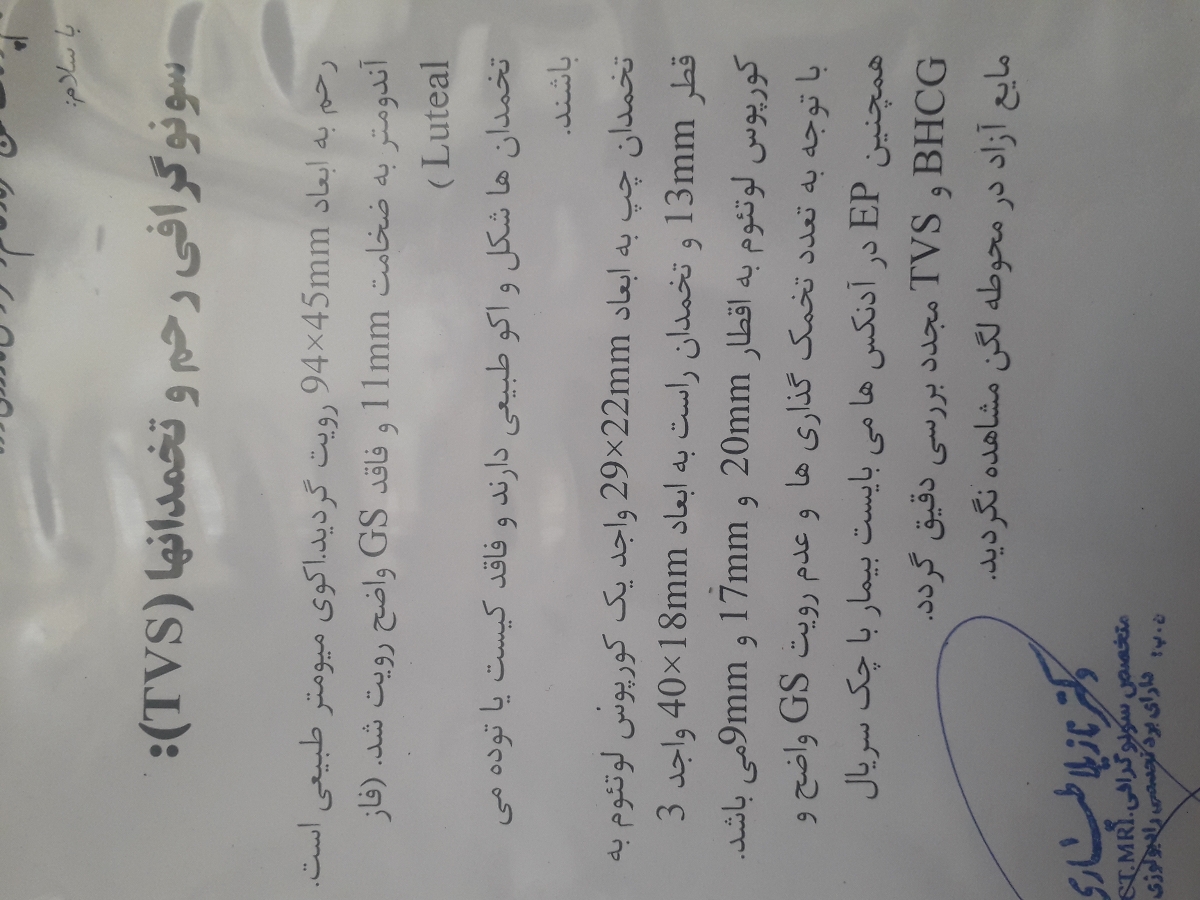 با سلام:
سونوگرافی رحم و تخمدانها (TVS):
رحم به ابعاد 94×45mm رویت گردید.اکوی میومتر طبیعی است.
آندومتر به ضخامت 11mm و فاقد GS واضح رویت شد. (فاز
Luteal )
تخمدان ها شکل و اکو طبیعی دارند و فاقد کیست یا توده می
باشند.
تخمدان چپ به ابعاد 29×22mm واجد یک کورپوس لوتئوم به
قطر 13mm و تخمدان راست به ابعاد 40×18mm واجد 3
کورپوس لوتئوم به اقطار 20mm و 17mm و 9mmمی باشد.
با توجه به تعدد تخمک گذاری ها و عدم رویت GS واضح و
همچنین EP در آدنکس ها می بایست بیمار با چک سریال
BHCG و TVS مجدد بررسی دقیق گردد.
مایع آزاد در محوطه لگن مشاهده نگردید.
دکتر
متخصص سونوگرافی.CT.MRI
دارای برد تخصصی رادیولوژی
ن.پ: